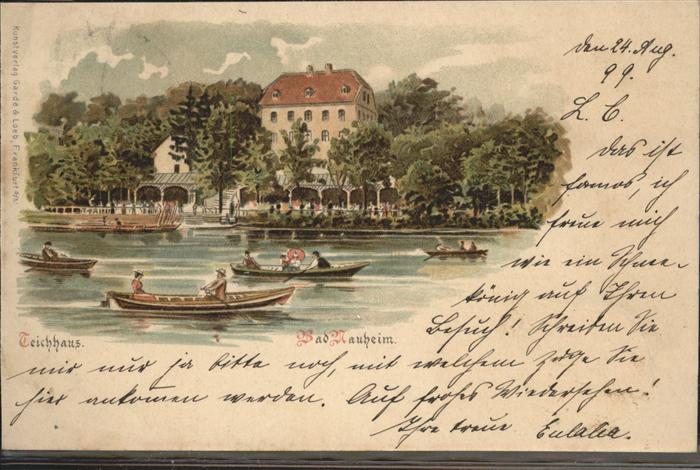 Kunstverlag Gerde & Loeb, Frankfurt a/M.
den 24. Aug.
99.
L. C.
das ist
famos, ich
freue mich
wie ein Schnee-
könig auf Ihren
Besuch! Schreiben Sie
Teichhaus. Bad Nauheim.
mir nur ja bitte noch, mit welchem Zuge Sie
hier ankommen werden. Auf frohes Wiedersehen!
Ihre treue Eulalia.